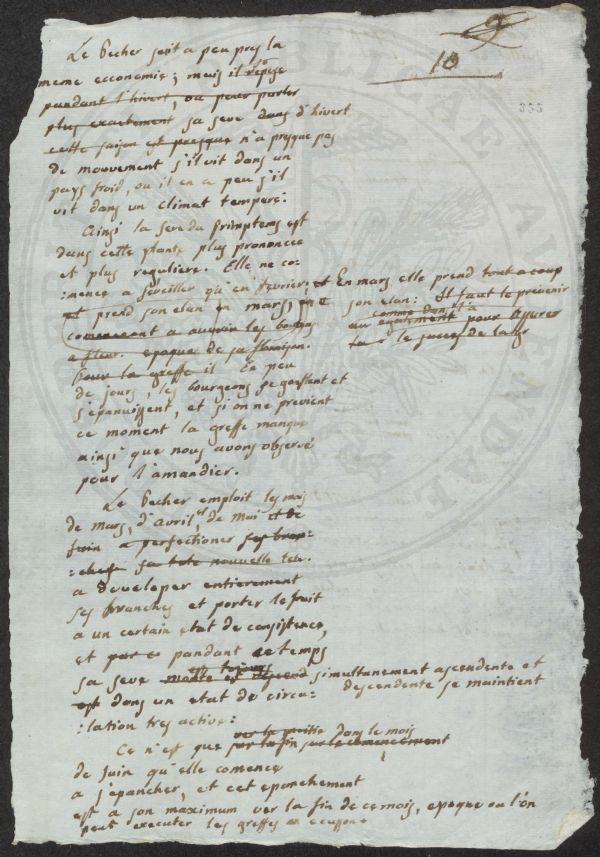 9
10
333
Le Pecher suit a peu pres la
meme economie ; mais il repose
pandant l'hivert, ou pour parler
plus exactement sa seve dans d'hivert
cette saison est presque n'a presque pas
de mouvement s'il vit dans un
pays froid, ou il en a peu s'il
vit dans un climat temperé.
Ainsi la seve du printems est
dans cette plante plus prononcee
et plus reguliere. Elle ne co-
:mence a s'eveiller qu'en fevrier, et
et prend son elan en mars,
commencent a ouvrir les
a fleur. epoque de sa floraison.
Pour la greffe il peu
de jours, les bourgeons se gonflent et
s'epanuissent, et si on ne previent
ce moment la greffe manque
ainsi que nous avons observé
pour l'amandier.
En mars elle prend tout a coup
son elan : Il faut le prevenir
comme dans l'a
pour assurer
le succes de la
Le Pecher emploit les mois
de mars, d'avril, et de mai et de
juin a perfectioner ses bran:
:ches sa tete nouvelle tete.
a developer entierement
ses branches et porter le fruit
a un certain etat de consistence,
et par ce pandant ce temps
sa seve monte et descend simultanement ascendente et
est toujours
descendente se maintient
est dans un etat de circu:
:lation tres active :
vers la moitie dans le mois
Ce n'est que sur la fin sur le comencement
de juin qu'elle comence
a s'epancher, et cet epanchement
est a son maximum ver la fin de ce mois, epoque ou l'on
peut executer les greffes a ecusson